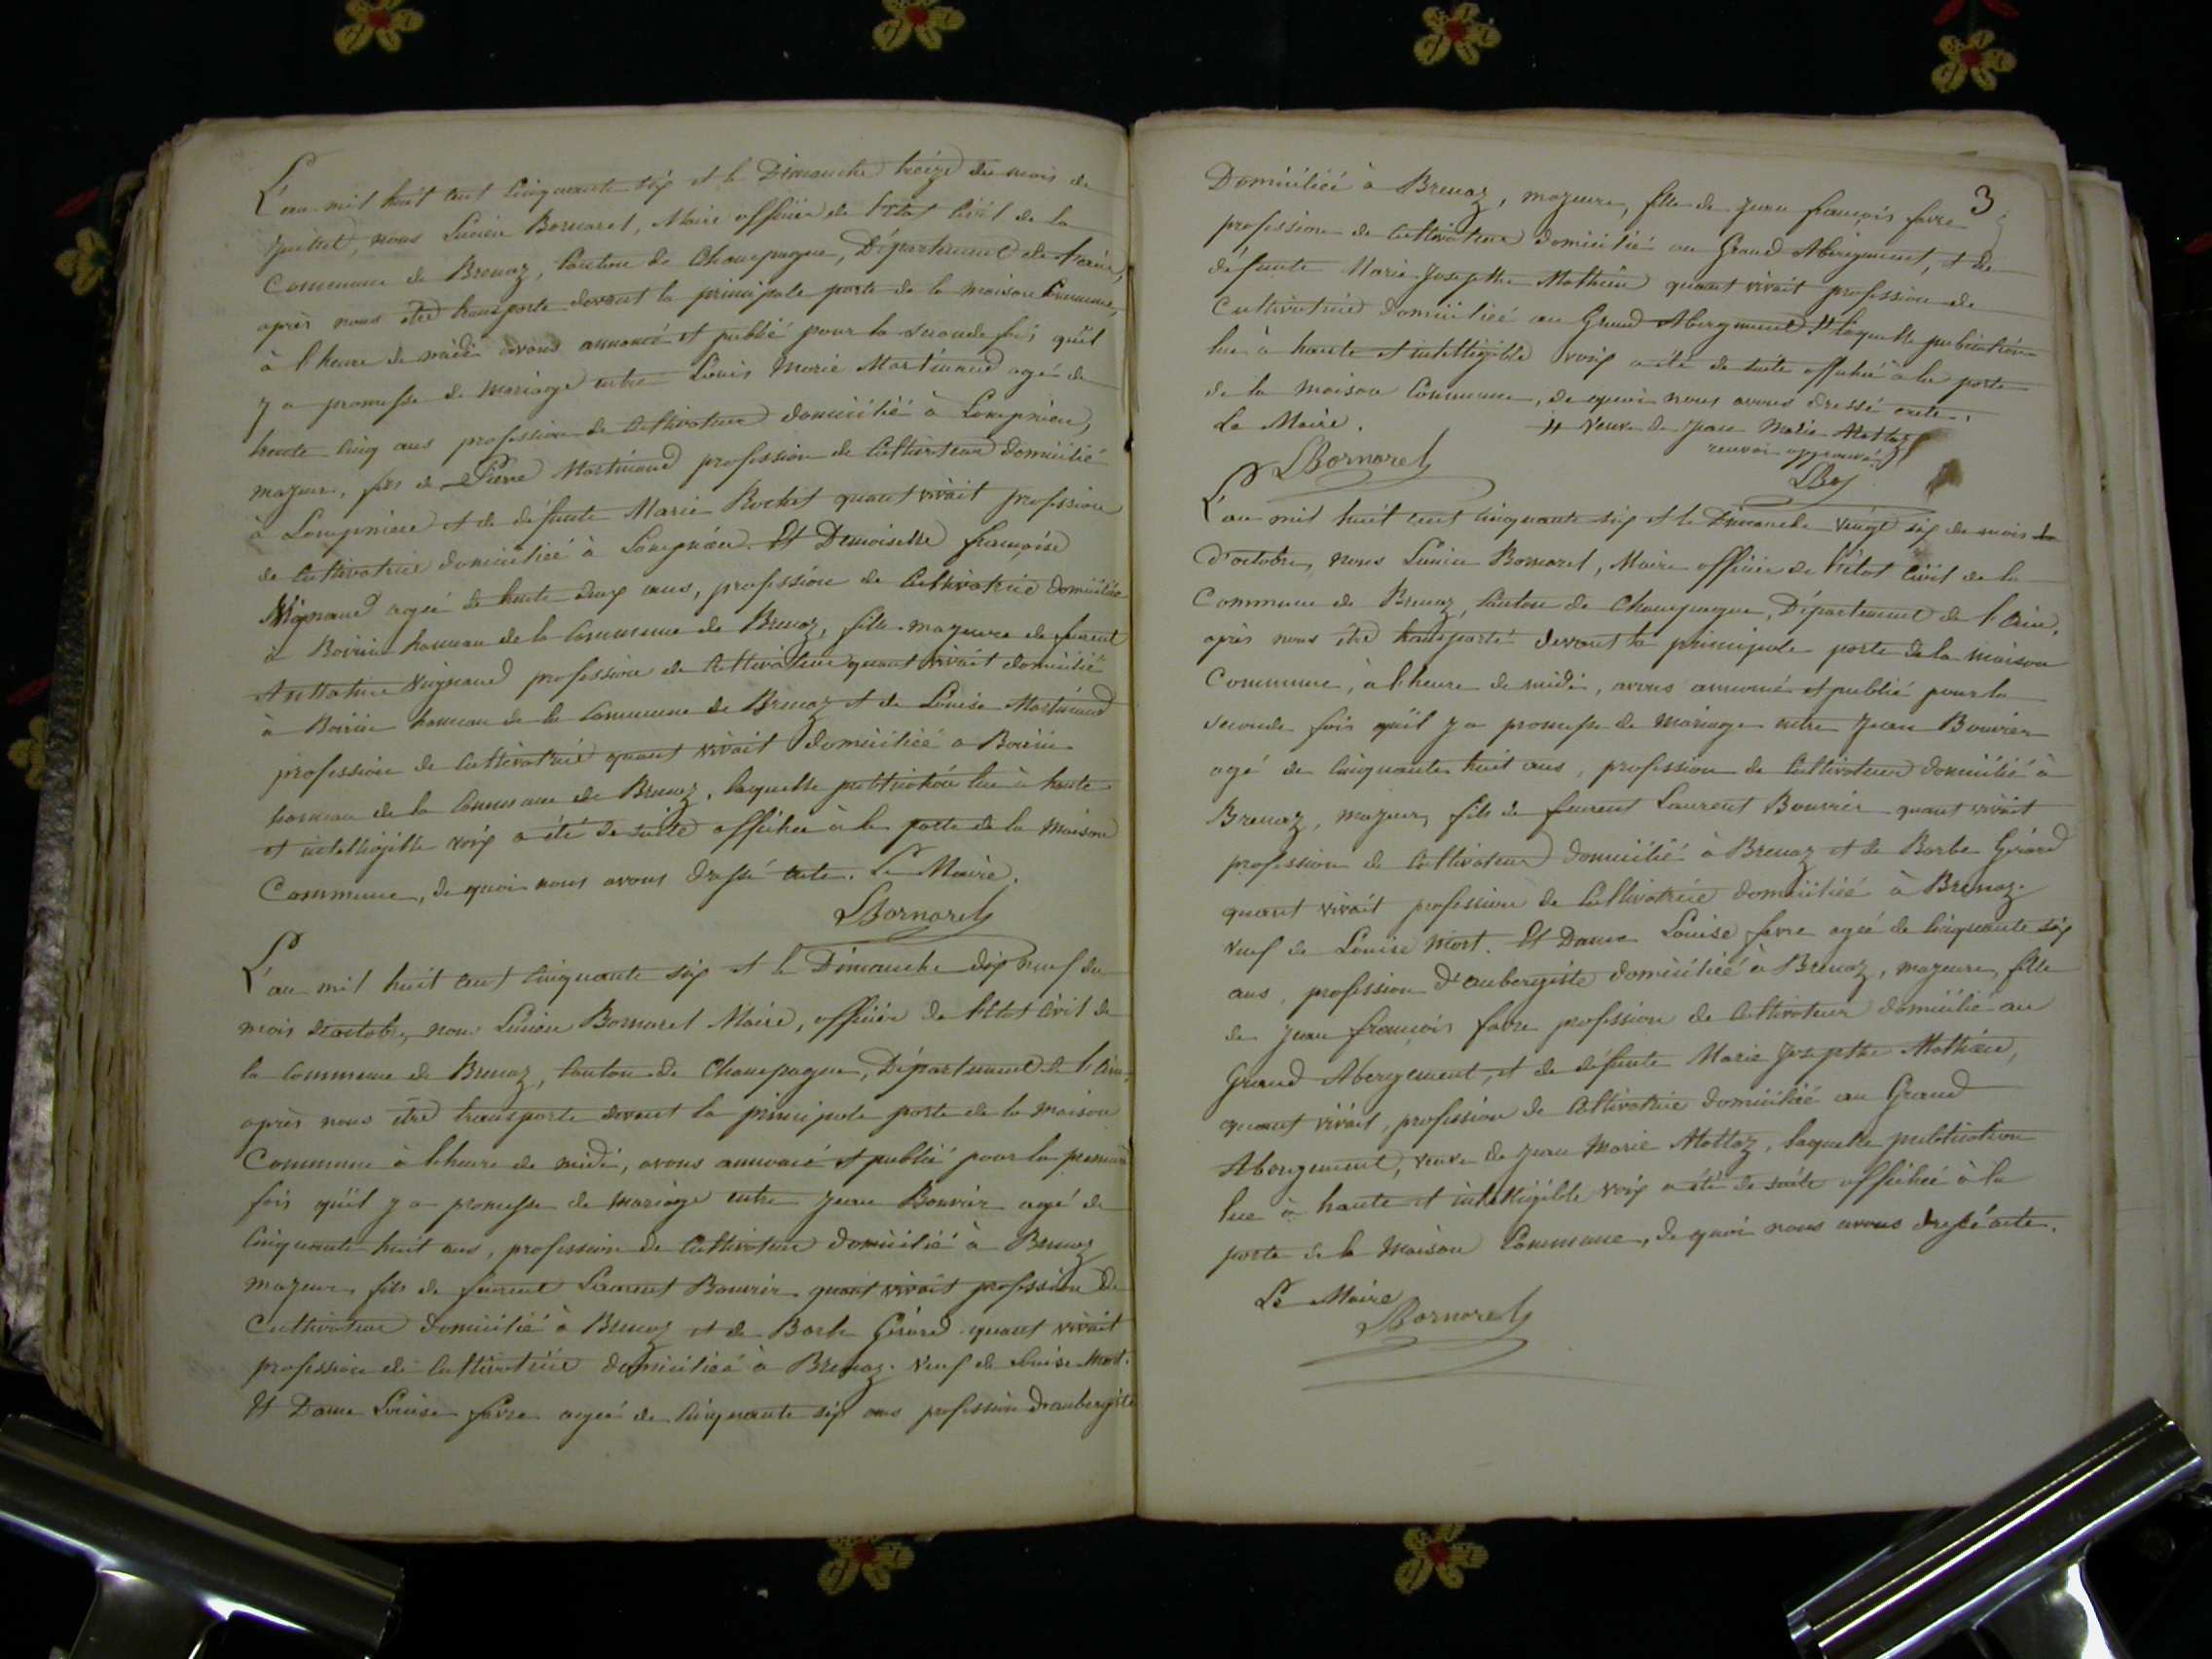 L'an mil huit cent cinquante six et le Dimanche treize du mois de
Juillet, nous Lucien Bornarel, Maire officier de l'état Civil de la
Commune de Brenaz, Canton de Champagne, Département de l'ain,
après nous être transporté devant la principale porte de la maison Commune,
à l'heure de midi avons annoncé et publié pour la seconde fois qu'il
y a promesse de mariage entre Louis Marie Martinaud agé de
trente cinq ans profession de Cultivateur domicilié à Lompnieu,
majeur, fils de Pierre Martinaud profession de Cultivateur domicilié
à Lompnieu et de défunte Marie Rochet quant vivait profession
de Cultivatrice domiciliée à Lompnieu. Et Demoiselle françoise
Vignaud agée de trente deux ans, profession de Cultivatrice domiciliée
à hameau de la Commune de Brenaz, fille majeure de feurent
Anthelme Vignaud profession de Cultivateur quant vivait domicilié
à hameau de la Commune de Brenaz et de Louise Martinaud
profession de Cultivatrice quant vivait domiciliée a
hameau de la Commune de Brenaz, laquelle publication lue à haute
et intelligible voix a été de suite affichée à la porte de la Maison
Commune, de quoi nous avons dressé acte. Le Maire.
LBornarel
L'an mil huit cent cinquante six et le Dimanche dix neuf du
mois d'octobre, nous Lucien Bornarel Maire, officier de l'état Civil de
la Commune de Brenaz, Canton de Champagne, Département de l'Ain,
après nous être transporté devant la principale porte de la maison
Commune à l'heure de midi, avons annoncé et publié pour la première
fois qu'il y a promesse de mariage entre Jean Bouvier agé de
Cinquante huit ans, profession de Cultivateur domicilié à Brenaz
majeur, fils de feurent Laurent Bouvier quant vivait profession de
Cultivateur domicilié à Brenaz et de Barbe Gérard quant vivait
profession de Cultivatrice domiciliée à Brenaz. Veuf de Louise Mort.
Et Dame Louise favre agée de Cinquante six ans profession d'aubergiste
3
Domiciliée à Brenaz, majeure, fille de Jean françois favre
profession de Cultivateur domicilié au Grand Abergement, et de
défunte Marie Josephte Mathieu quant vivait profession de
Cultivatrice domiciliée au Grand Abergement # laquelle publication
lue à haute et intelligible voix a été de suite affichée à la porte
de la maison Commune, de quoi nous avons dressé acte.
Le Maire. # Veuve de Jean Marie Mottaz
renvoi approuvé
LBornarel LB
L'an mil huit cent cinquante six et le Dimanche vingt six du mois de
d'octobre, nous Lucien Bornarel, Maire officier de l'état Civil de la
Commune de Brenaz, Canton de Champagne, Département de l'Ain,
après nous être transporté devant la principale porte de la maison
Commune, à l'heure de midi, avons annoncé et publié pour la
seconde fois qu'il y a promesse de mariage entre Jean Bouvier
agé de Cinquante huit ans, profession de Cultivateur domicilié à
Brenaz, majeur, fils de feurent Laurent Bouvier quant vivait
profession de Cultivateur domicilié à Brenaz et de Barbe Gérard
quant vivait profession de Cultivatrice domiciliée à Brenaz.
Veuf de Louise Mort. Et Dame Louise favre agée de Cinquante six
ans, profession d'aubergiste domiciliée à Brenaz, majeure, fille
de Jean françois favre profession de Cultivateur domicilié au
Grand Abergement, et de défunte Marie Josephte Mathieu,
quant vivait, profession de Cultivatrice domiciliée au Grand
Abergement, veuve de Jean Marie Mottaz, laquelle publication
lue à haute et intelligible voix a été de suite affichée à la
porte de la Maison Commune, de quoi nous avons dressé acte.
Le Maire
LBornarel